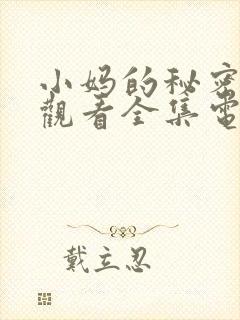 小妈的秘密
觀看全集電
戴立忍